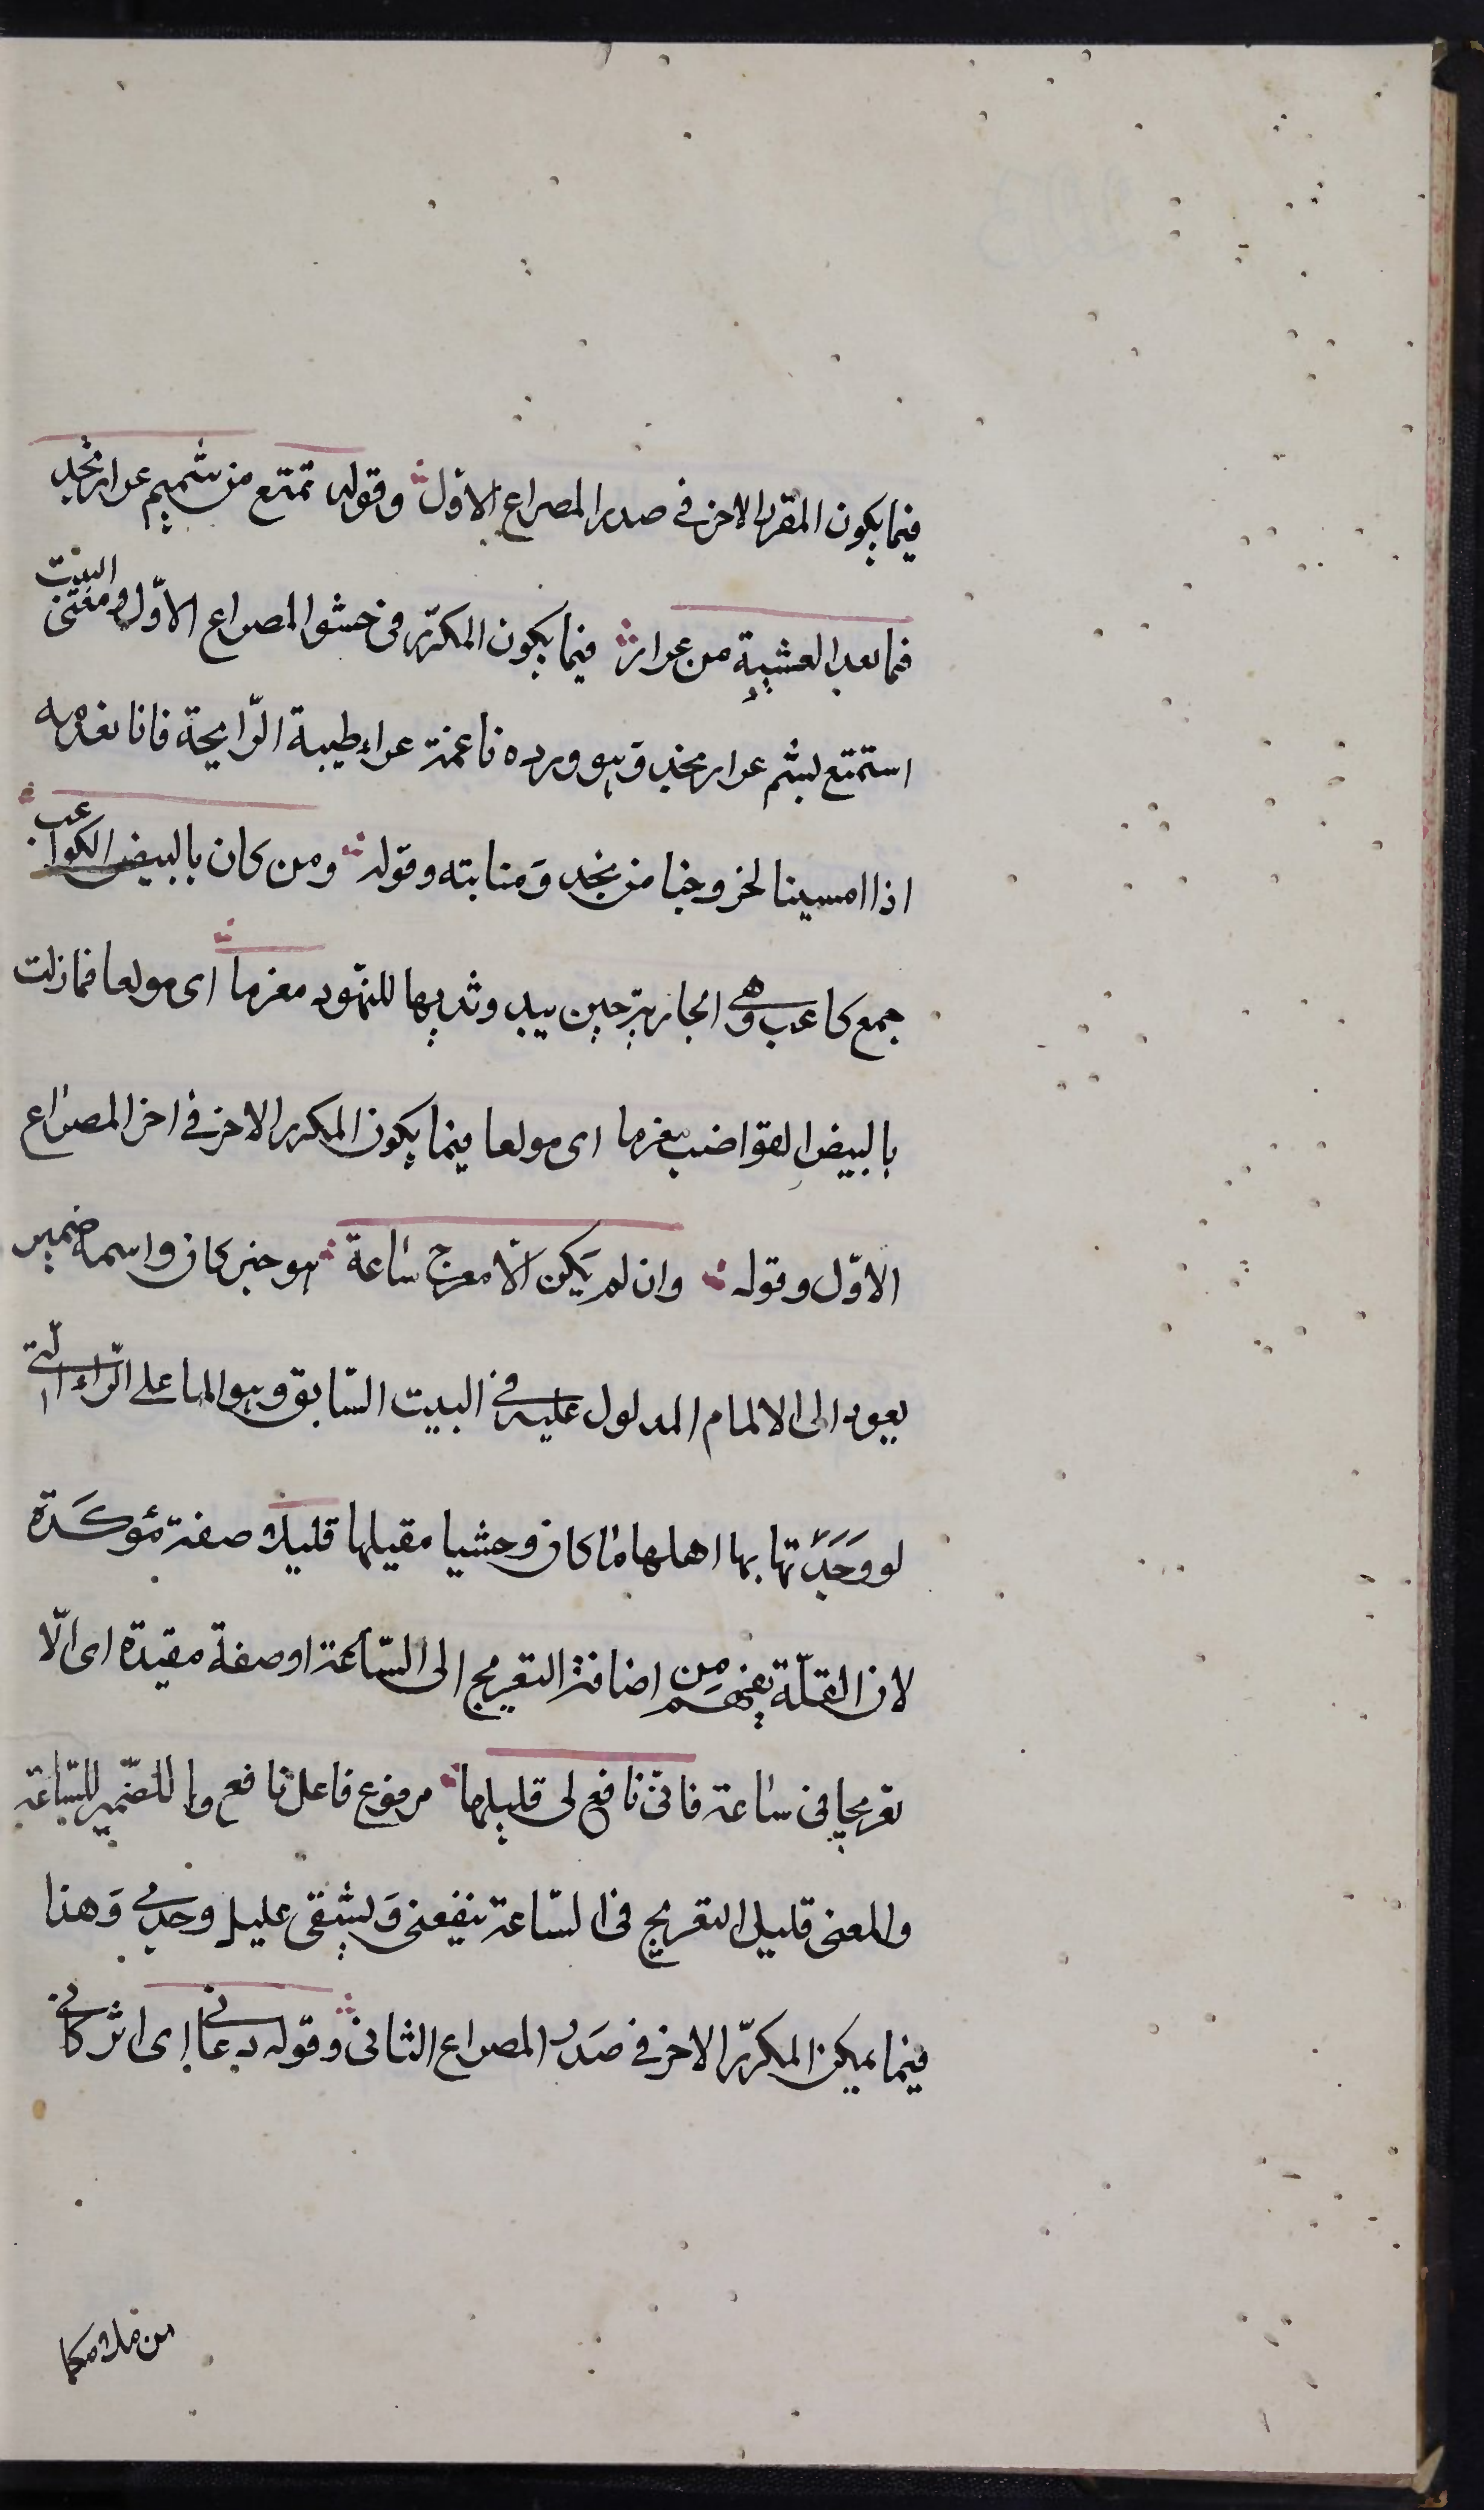 فيما يكون المقرر الاخر فى صدر المصراع الاول وقوله تمتع من شميم عرار نجد
فما بعد العشية من عرار فيما يكون المكرّر فى حشو المصراع الاوّل ومعنى البيت
استمتع بشم عرار نجد وهو وردة ناعمة عراء طيبة الرّايحة فانا نعدمه
اذا امسينا لخروجنا من نجد ومنابته وقوله ومن كان بالبيض الكواعب
جمع كاعب وهى الجارية حين يبدو ثديها للنهود مغرما اى مولعا فمازلت
بالبيض القواضب مغرما اى مولعا فيما يكون المكرر الاخر فى اخر المصراع
الاوّل وقوله وان لم يكن الّا معرج ساعة هو خبر كان واسمه ضمير
يعود الى الالمام المدلول عليه فى البيت السّابق وهو الما على الدّار الّتى
لو وَجَدْتها بها اهلها ما كان وحشيا مقيلها قليلا صفة مؤكَدة
لان القلّة يفهم من اضافة التعريج الى السّاعة او صفة مقيدة اى الّا
تعريجا فى ساعة فانّى نافع لى قليلها مرفوع فاعل نافع والضّمير للسّاعة
والمعنى قليل التعريج فى السّاعة ينفعنى ويشفى غليل وجدى وهذا
فيما يكن المكرّر الاخر فى صَدر المصراع الثانى وقوله دعانى اى اتركانى
من ملامكما